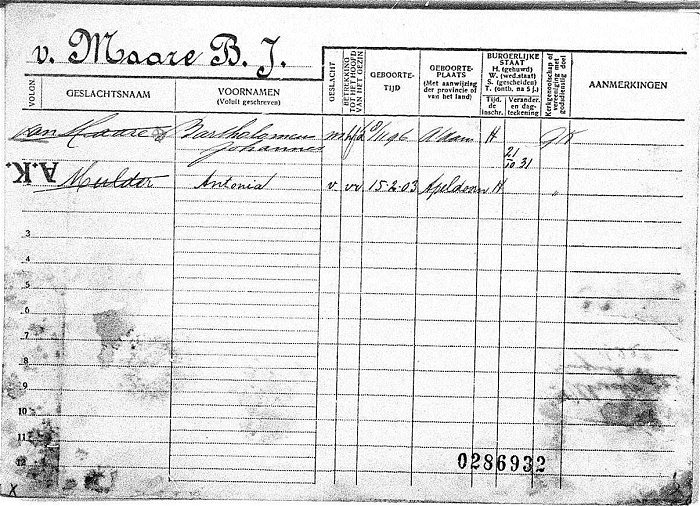 v. Maare B. J.
VOLGN.
GESLACHTSNAAM
VOORNAMEN
(Voluit geschreven)
GESLACHT
BETREKKING
TOT HET HOOFD
VAN HET GEZIN
GEBOORTE-
TIJD
GEBOORTE-
PLAATS
(Met aanwijzing
der provincie of
van het land)
BURGERLIJKE
STAAT
H. (gehuwd)
W. (wed.staat)
S. (gescheiden)
T. (ontb. na 5 j.)
Tijd.
de
inschr.
Verander.
en dag-
teekening
Kerkgenootschap of
vereeniging met
godsdienstig doel
AANMERKINGEN
van Maare Bartholomeus m hfd A'dam H
Johannes
21/10 31
A.K.
Mulder Antonia v. vr 15-2-03 Apeldoorn H "
3
4
5
6
7
8
9
10
11
12
0286932
X